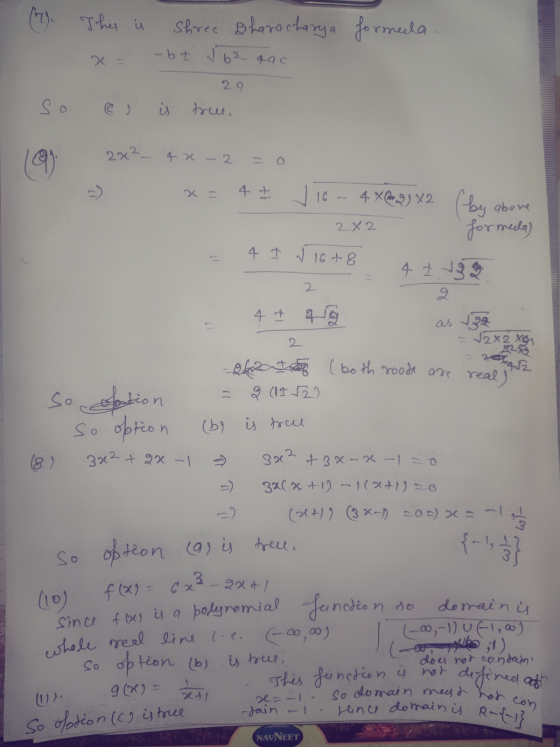 (7). This is Shree Dharacharya formula.
x = -b ± √b² - 4ac
2a
So (c) is true.
(9). 2x² - 4x - 2 = 0
⇒ x = 4 ± √16 - 4×(-2)×2 (by above
2×2 formula)
= 4 ± √16+8 = 4 ± √32
2 2
= 4 ± 4√2 as √32
2 = √2×2×2
×2×2
= 4√2
(both roots are real)
So option = 2(1±√2)
So option (b) is true
(8) 3x² + 2x - 1 ⇒ 3x² + 3x - x - 1 = 0
⇒ 3x(x+1) - 1(x+1) = 0
⇒ (x+1) (3x-1) = 0 ⇒ x = -1, 1/3
So option (a) is true. {-1, 1/3}
(10) f(x) = 6x³ - 2x + 1
Since f(x) is a polynomial function so domain is
whole real line i.e. (-∞, ∞)
(-∞, -1) ∪ (-1, ∞)
So option (b) is true. does not contain
(11). g(x) = 1/x+1. This function is not defined at
x = -1. So domain must not con
So option (c) is true -tain -1. Hence domain is R-{-1}
NAVNEET